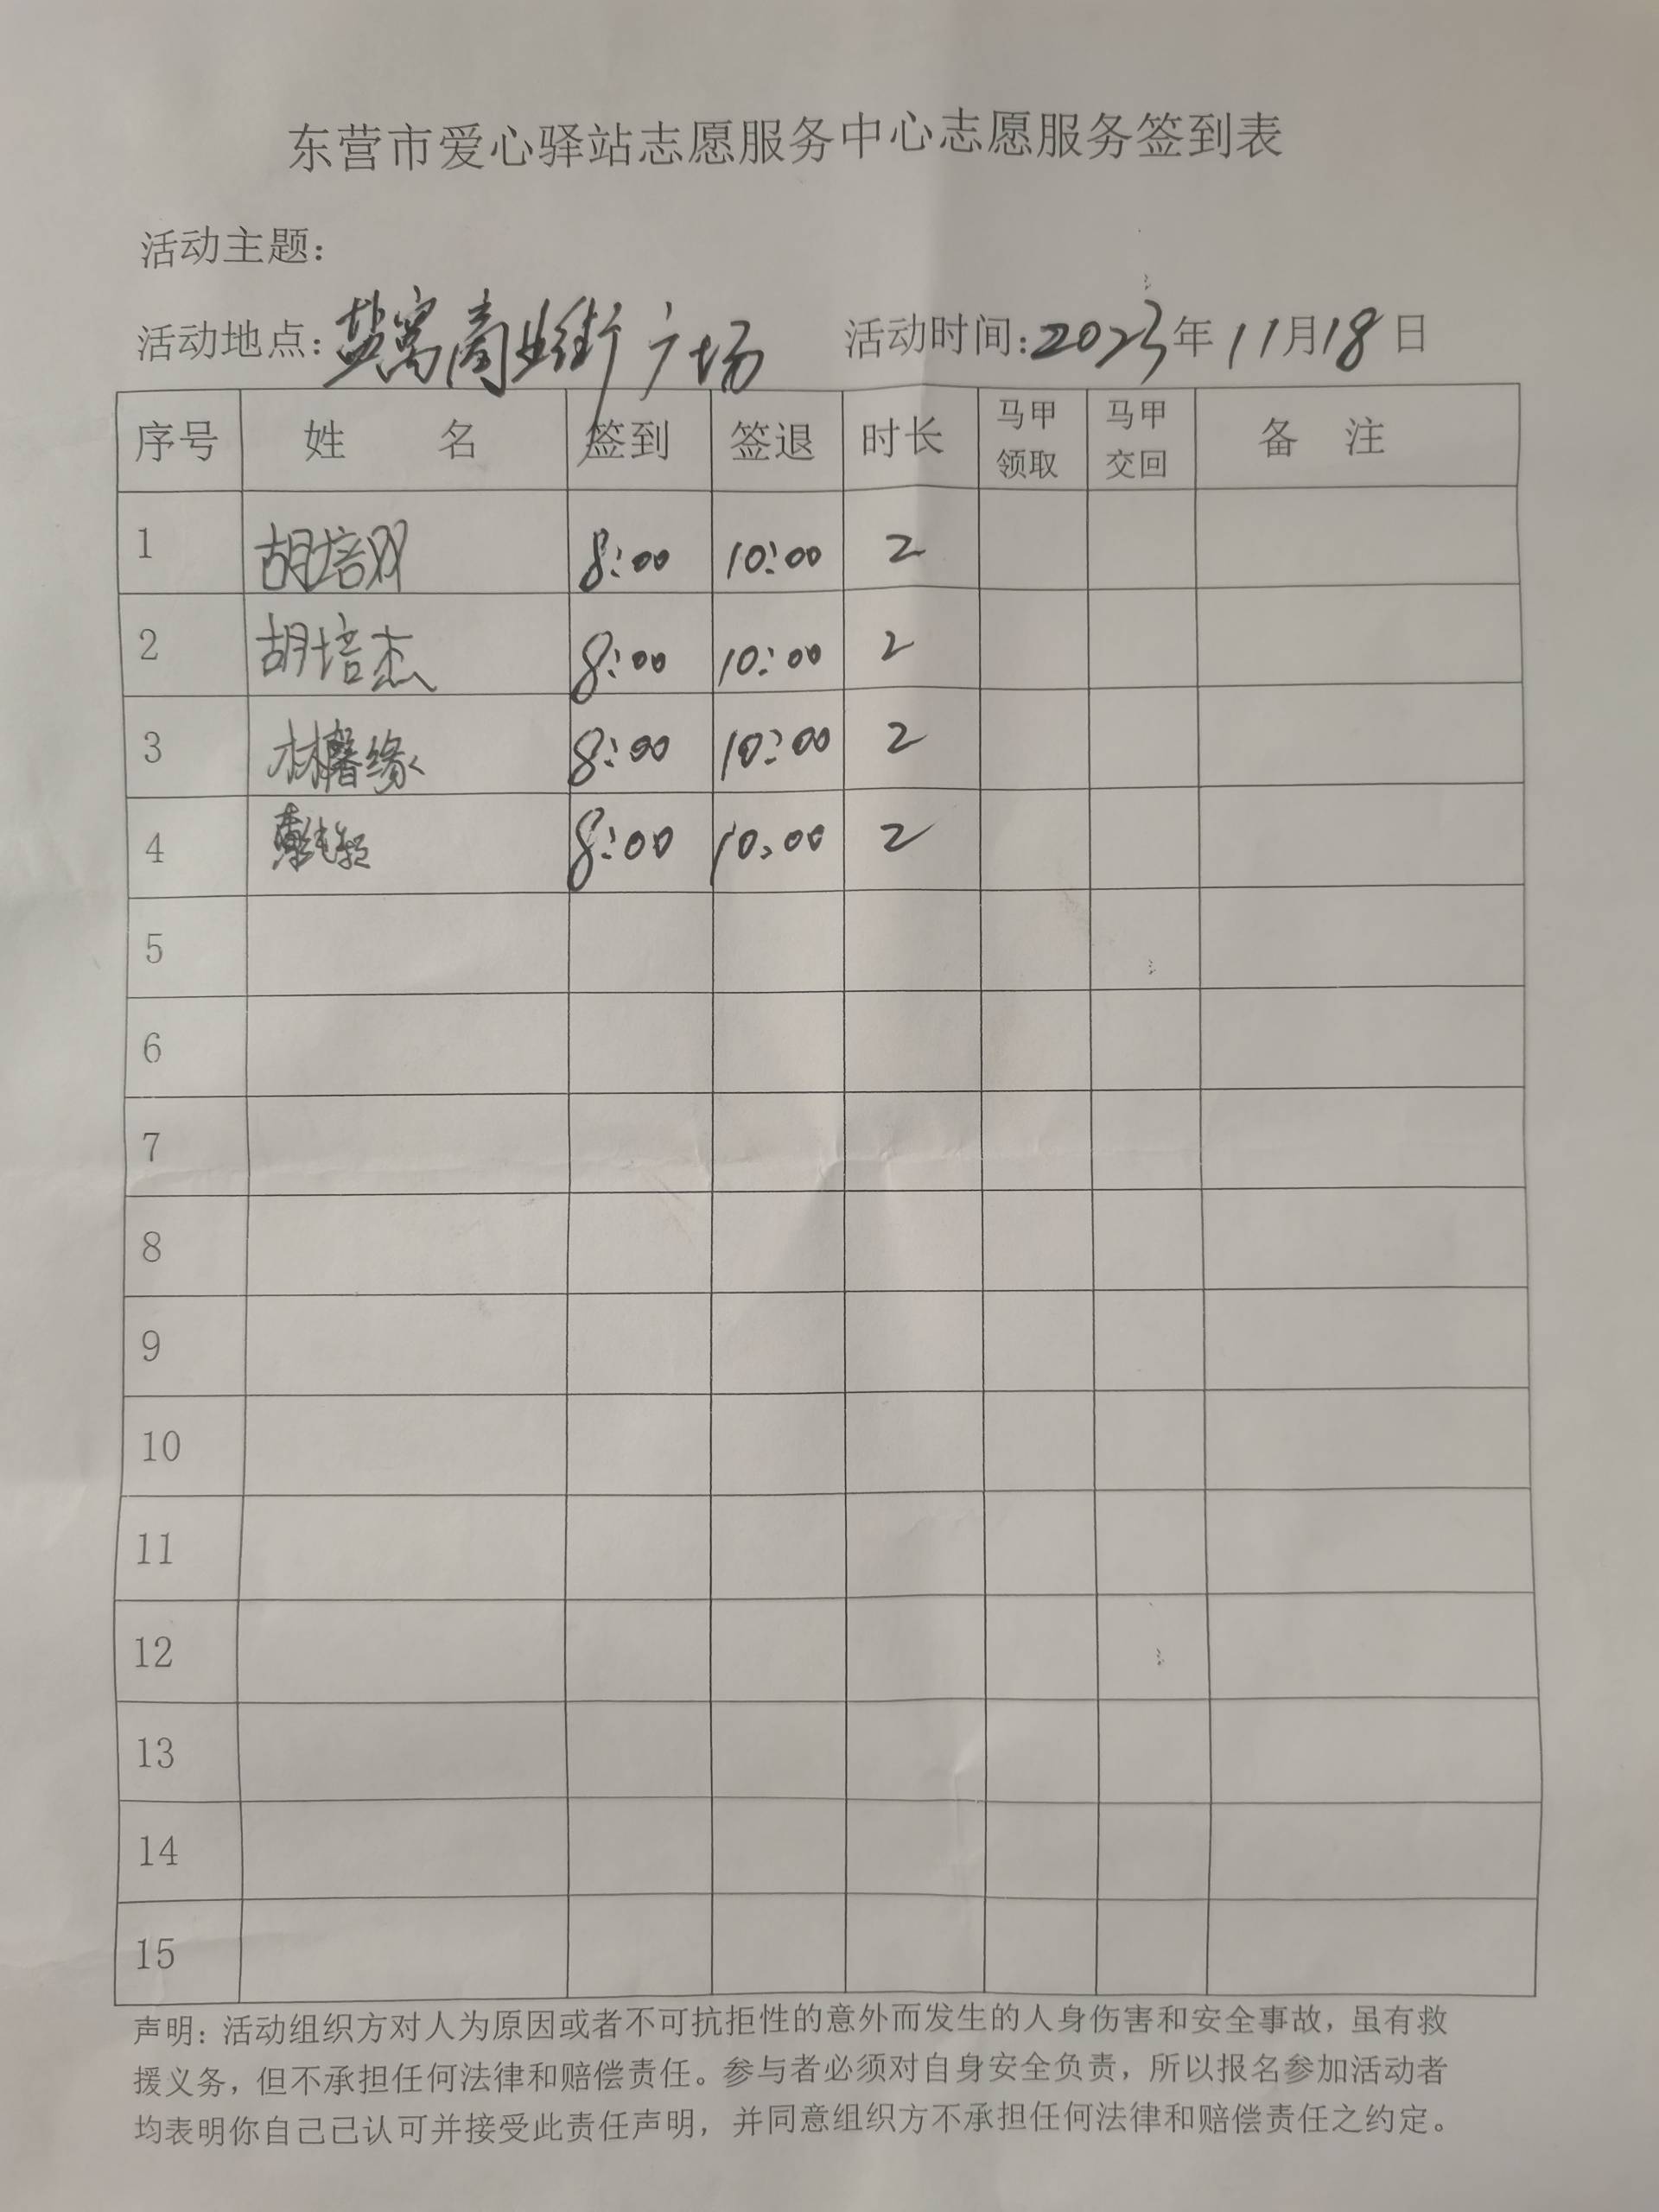 东营市爱心驿站志愿服务中心志愿服务签到表
活动主题：
活动地点：盐窝商业街广场 活动时间：2023年11月18日
序号 姓名 签到 签退 时长 马甲领取 马甲交回 备注
1 胡培双 8:00 10:00 2
2 胡培杰 8:00 10:00 2
3 林馨缘 8:00 10:00 2
4 8:00 10:00 2
5
6
7
8
9
10
11
12
13
14
15
声明：活动组织方对人为原因或者不可抗拒性的意外而发生的人身伤害和安全事故，虽有救
援义务，但不承担任何法律和赔偿责任。参与者必须对自身安全负责，所以报名参加活动者
均表明你自己已认可并接受此责任声明，并同意组织方不承担任何法律和赔偿责任之约定。